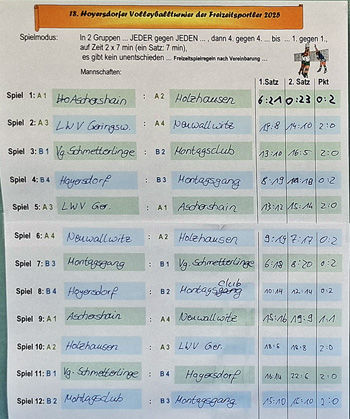 18. Hoyersdorfer Volleyballturnier der Freizeitsportler 2025
Spielmodus: In 2 Gruppen ... JEDER gegen JEDEN ..., dann 4. gegen 4. ... bis ... 1. gegen 1..
auf Zeit 2 x 7 min (ein Satz: 7 min),
es gibt kein unentschieden ... Freizeitspielregeln nach Vereinbarung ...
Mannschaften:
1.Satz 2. Satz Pkt
Spiel 1: A 1 Aschershain : A 2 Holzhausen 6:21 0:23 0:2
Spiel 2: A 3 LWV Geringsw. : A 4 Neuwallwitz 14:10 2:0
Spiel 3: B 1 Vg. Schmetterlinge : B 2 Montagsclub 13:10 16:5 2:0
Spiel 4: B 4 Hoyersdorf : B 3 Montagsgang 8:19 0:2
Spiel 5: A 3 LWV Ger. : A 1 Aschershain 13:12 15:14 2:0
Spiel 6: A 4 Neuwallwitz : A 2 Holzhausen 9:19 7:17 0:2
Spiel 7: B 3 Montagsgang : B 1 Vg. Schmetterlinge 6:18 8:20 0:2
Spiel 8: B 4 Hoyersdorf : B 2 Montagsclub 10:14 12:14 0:2
Spiel 9: A 1 Aschershain : A 4 Neuwallwitz 15:16 19:9 1:1
Spiel 10: A 2 Holzhausen : A 3 LWV Ger. 18:6 2:0
Spiel 11: B 1 Vg. Schmetterlinge : B 4 Hoyersdorf 22:6 2:0
Spiel 12: B 2 Montagsclub : B 3 Montagsgang 15:10 16:10 2:0